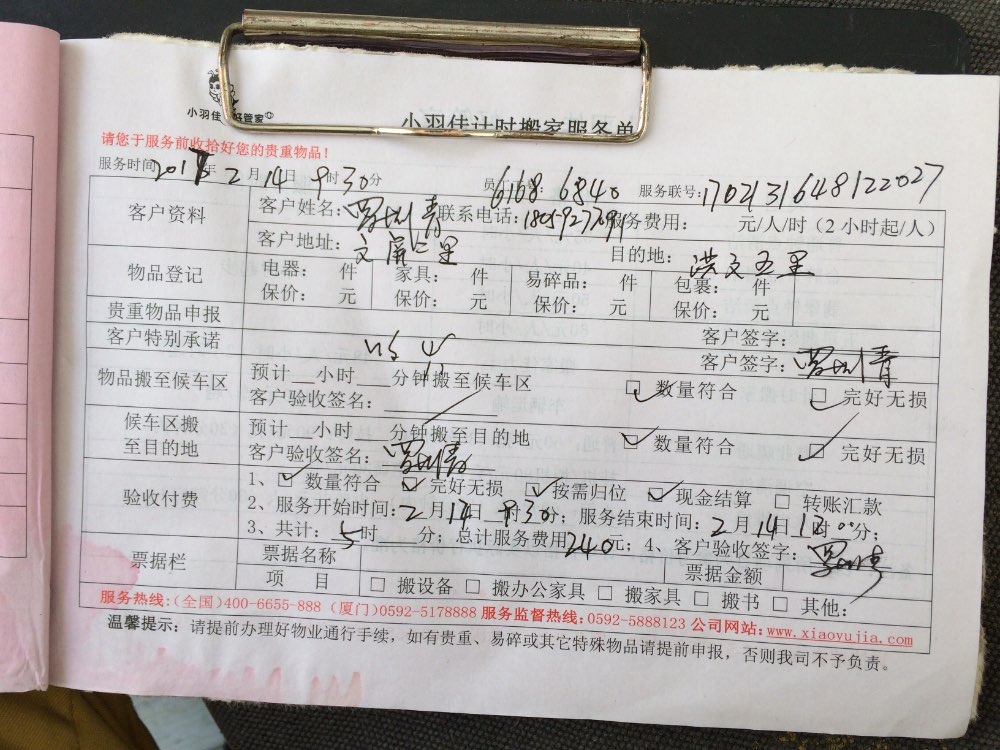 小羽佳 好管家
小羽佳计时搬家服务单
请您于服务前收拾好您的贵重物品!
服务时间 2017年 2月14日 9时30分 6168 6840 服务联号: 1702131648122027
客户资料 客户姓名: 联系电话: 服务费用: 元/人/时(2小时起/人)
客户地址: 文屏二里 目的地: 洪文五里
物品登记 电器: 件 家具: 件 易碎品: 件 包裹: 件
保价: 元 保价: 元 保价: 元 保价: 元
贵重物品申报 客户签字:
客户特别承诺 客户签字:
物品搬至候车区 预计__小时___分钟搬至候车区 数量符合 完好无损
客户验收签名:
候车区搬至目的地 预计__小时___分钟搬至目的地 数量符合 完好无损
客户验收签名:
验收付费 1、 数量符合 完好无损 按需归位 现金结算 □ 转账汇款
2、服务开始时间: 2月14日 9时30分; 服务结束时间: 2月14日 分;
3、共计: 5时 分; 总计服务费用 240元; 4、客户验收签字:
票据栏 票据名称 票据金额
项 目 □ 搬设备 □ 搬办公家具 □ 搬家具 □ 搬书 □ 其他:
服务热线:(全国)400-6655-888 (厦门)0592-5178888 服务监督热线:0592-5888123 公司网站:www.xiaoyujia.com
温馨提示: 请提前办理好物业通行手续, 如有贵重、易碎或其它特殊物品请提前申报, 否则我司不予负责。